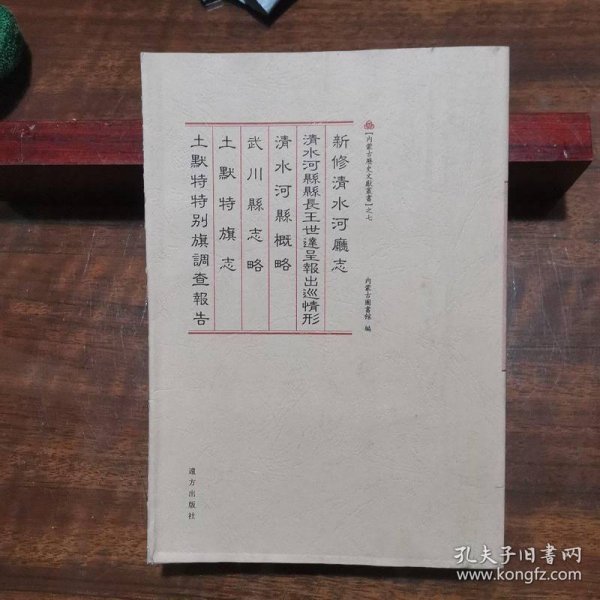 【内蒙古歷史文獻叢書】之七
新修清水河廳志
清水河縣縣長王世達呈報出巡情形
清水河縣概略
武川縣志略
土默特旗志
土默特特别旗調查報告
内蒙古圖書館 編
遠方出版社
孔夫子旧书网
www.kongfz.com